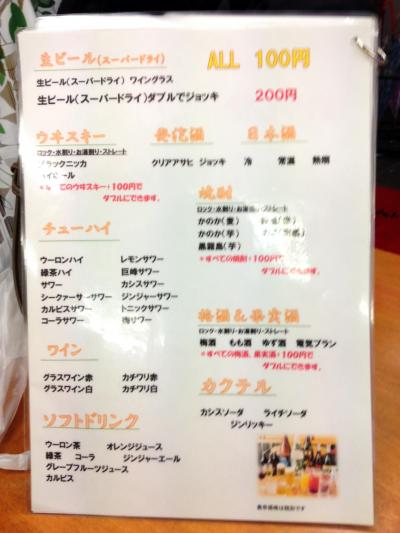 生ビール(スーパードライ) ALL 100円
生ビール(スーパードライ) ワイングラス
生ビール(スーパードライ)ダブルでジョッキ 200円
ウヰスキー
ロック・水割り・お湯割り・ストレート
ブラックニッカ
ハイボール
のウヰスキー+100円で
ダブルにできます。
発泡酒
クリアアサヒ ジョッキ
日本酒
冷 常温 熱燗
焼酎
ロック・水割り・お湯割り・ストレート
かのか(麦)
かのか(芋)
黒霧島(芋)
*すべての焼酎+100円で
ダブルにできます。
チューハイ
ウーロンハイ レモンサワー
緑茶ハイ 巨峰サワー
サワー カシスサワー
シークァーサーサワー ジンジャーサワー
カルピスサワー トニックサワー
コーラサワー 梅サワー
梅酒&果実酒
ロック・水割り・お湯割り・ストレート
梅酒 もも酒 ゆず酒 電気ブラン
*すべての梅酒、果実酒+100円で
ダブルにできます。
ワイン
グラスワイン赤 カチワリ赤
グラスワイン白 カチワリ白
カクテル
カシスソーダ ライチソーダ
ジンリッキー
ソフトドリンク
ウーロン茶 オレンジジュース
緑茶 コーラ ジンジャーエール
グレープフルーツジュース
カルピス